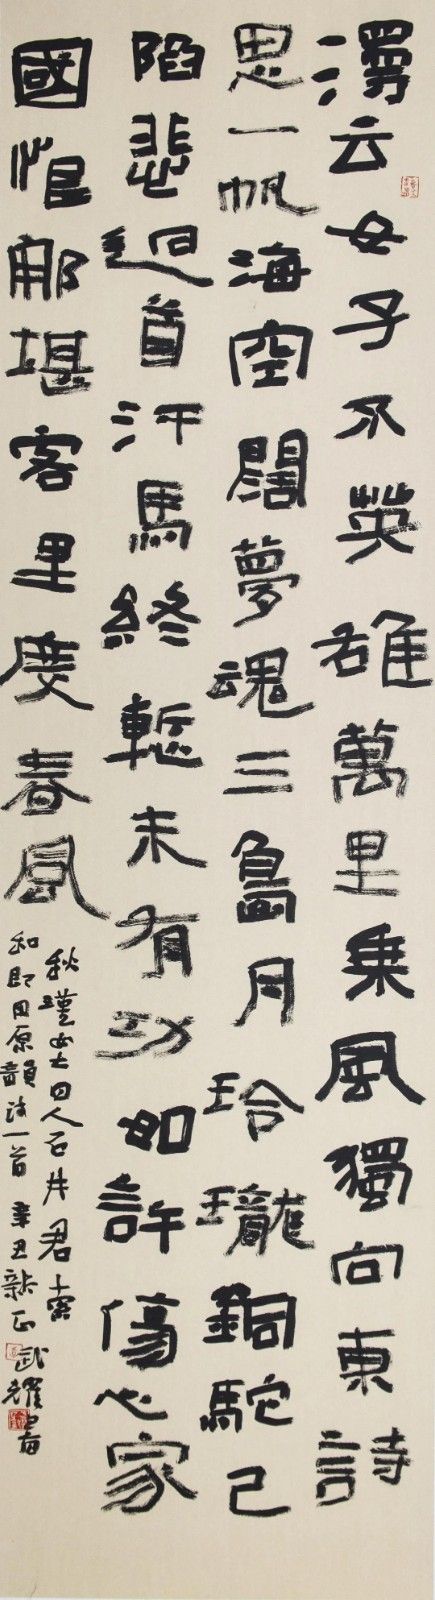 漫云女子不英雄萬里乘風獨向東詩
思一帆海空闊夢魂三島月玲瓏銅駝已
陷悲迴首汗馬終慙未有功如許傷心家
國恨那堪客里度春風
秋瑾女士日人石井君索
和即用原韻詩一首辛丑新正武耀書